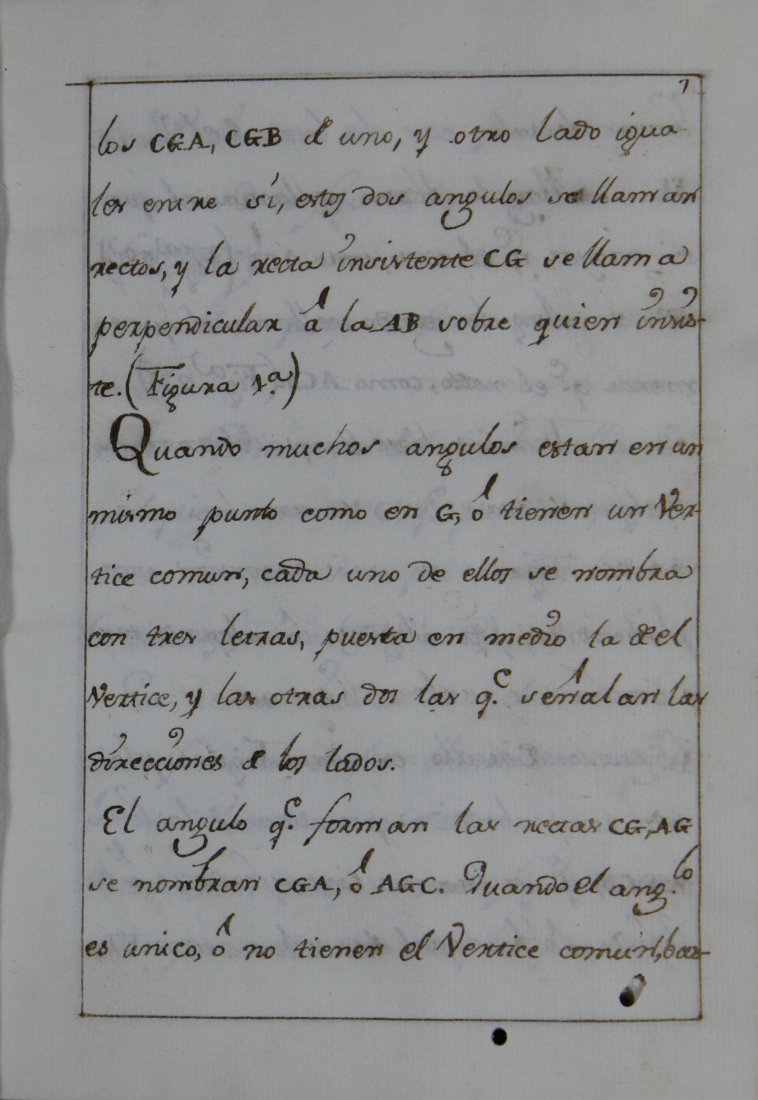 7
los CGA, CGB de uno, y otro lado igua-
les entre sí, estos dos angulos se llaman
rectos, y la recta insistente CG se llama
perpendicular á la AB sobre quien insis-
te. (Figura 1.ª)
Quando muchos angulos estan en un
mismo punto como en G, ó tienen un Ver-
tice comun, cada uno de ellos se nombra
con tres letras, puesta en medio la del
Vertice, y las otras dos las q.e señalan las
direcciones de los lados.
El angulo q.e forman las rectas CG, AG
se nombran CGA, ó AGC. Quando el ang.lo
es unico, ó no tienen el Vertice comun, bas-